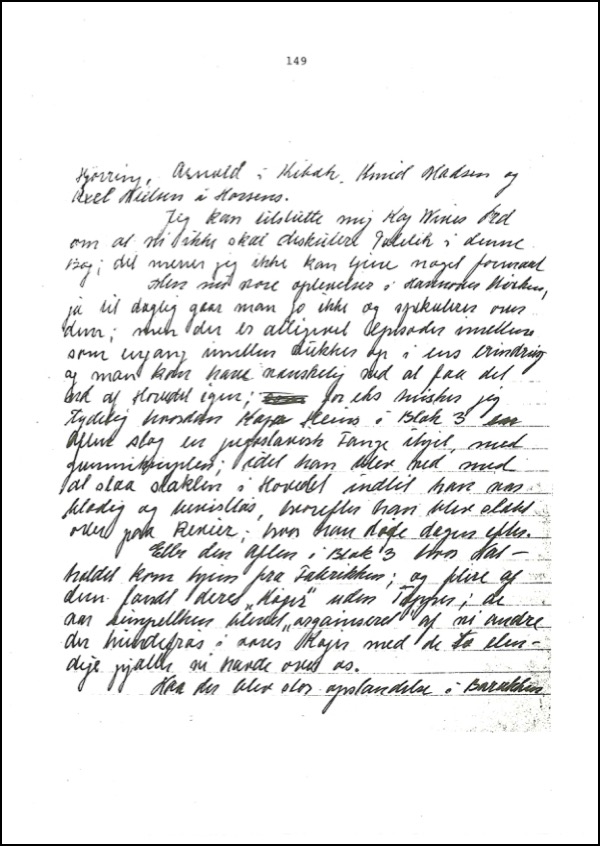 149
Hjørring, Arnold i Kibæk, Knud Madsen og
Axel Nielsen i Horsens.
Jeg kan tilslutte mig Kaj Wines Ord
om at vi ikke skal diskutere Politik i denne
Bog; det mener jeg ikke kan tjene noget formaal
med vore oplevelser i
ja til daglig gaar man jo ikke og spekulerer over
dem; men der er alligevel episoder imellem
som engang imellem dukker op i ens erindring
og man kan have vanskelig ved at faa det
ud af Hovedet igen; for eks husker jeg
Tydelig hvordan Heins i Blok 3 en
aften slog en jugoslavisk Fange ihjel, med
gummiknyplen; idet han blev ved med
at slaa staklen i Hovedet indtil han var
blodig og bevistløs, hvorefter han blev slæbt
over paa Revier; hvor han døde dagen efter.
Eller den aften i Blok 3 hvor Nat-
holdet kom hjem fra Fabrikken; og flere af
dem fandt deres „Køjer" uden Tæpper; de
var simpelthen blevet „organiseret" af vi andre
der hundefrøs i vores Køjer med de to elen-
dige pjalter vi havde over os.
Naa der blev stor opstandelse i Barakken